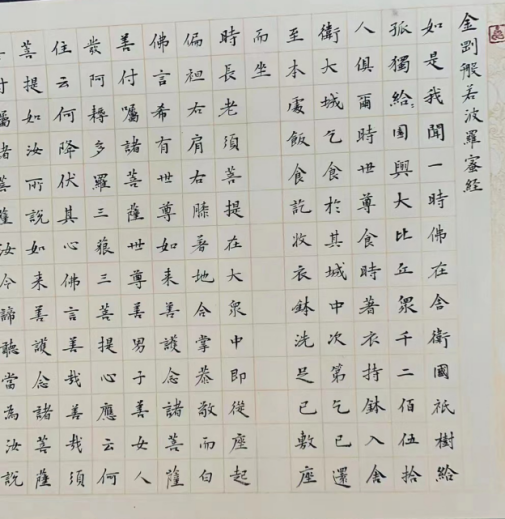 金剛般若波羅蜜經
如是我聞一時佛在舍衛國祇樹給
孤獨給園與大比丘眾千二佰伍拾
人俱爾時世尊食時著衣持鉢入舍
衛大城乞食於其城中次第乞已還
至本處飯食訖收衣鉢洗足已敷座
而坐
時長老須菩提在大眾中即從座起
偏袒右肩右膝著地合掌恭敬而白
佛言希有世尊如来善護念諸菩薩
善付囑諸菩薩世尊善男子善女人
發阿耨多羅三藐三菩提心應云何
住云何降伏其心佛言善哉善哉須
菩提如汝所說如来善護念諸菩薩
付囑諸菩薩汝今諦聽當為汝說